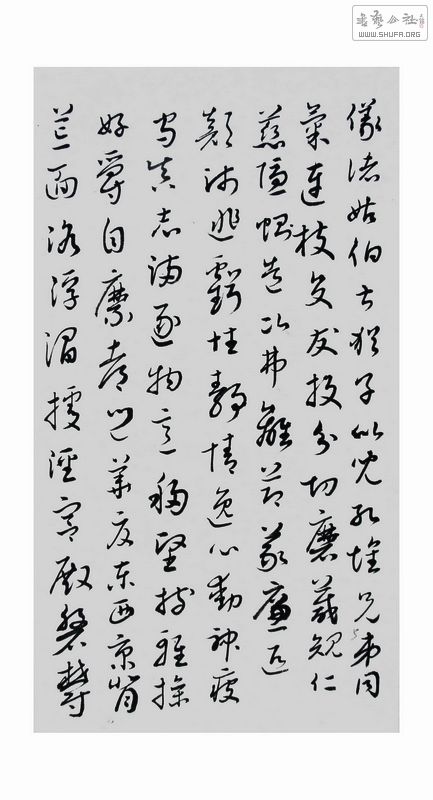 書藝公社
WWW.SHUFA.ORG
儀諸姑伯叔猶子比兒孔懷兄弟同
氣連枝交友投分切磨箴規仁
慈隱惻造次弗離節義廉退
顛沛匪虧性靜情逸心動神疲
守真志滿逐物意移堅持雅操
好爵自縻都邑華夏東西京背
芒面洛浮渭據涇宮殿盤鬱